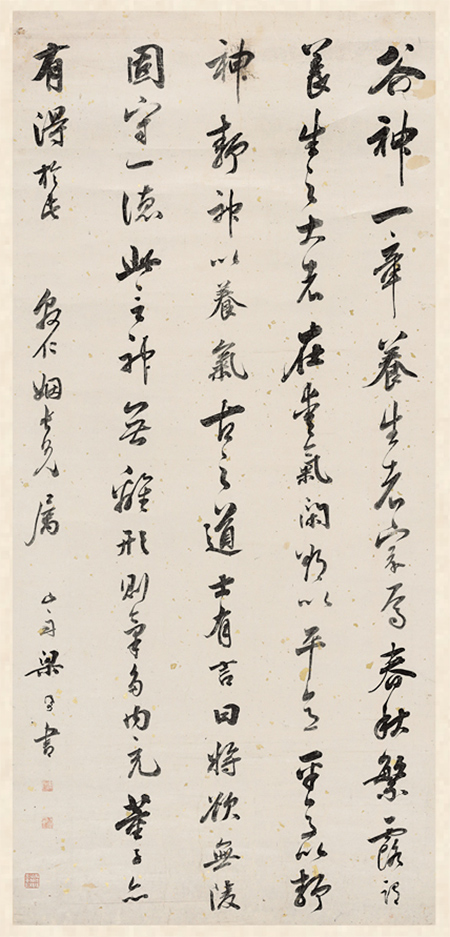 谷神一章養生者宗焉春秋繁露謂
養生之大者在愛氣閑欲以平意平意以靜
神靜神以養氣古之道士有言曰將欲無陵
固守一德此言神無離形則氣多內充董子亦
有得於 仁姻長兄屬 山舟梁同書